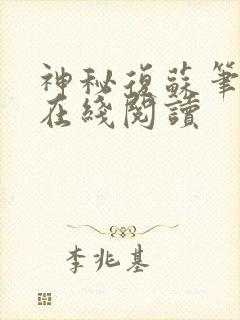 神秘復蘇筆
在綫閱讀
李兆基